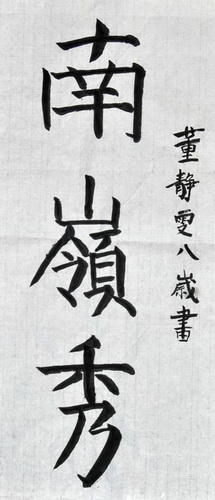 南嶺秀
董靜雯八歲畫